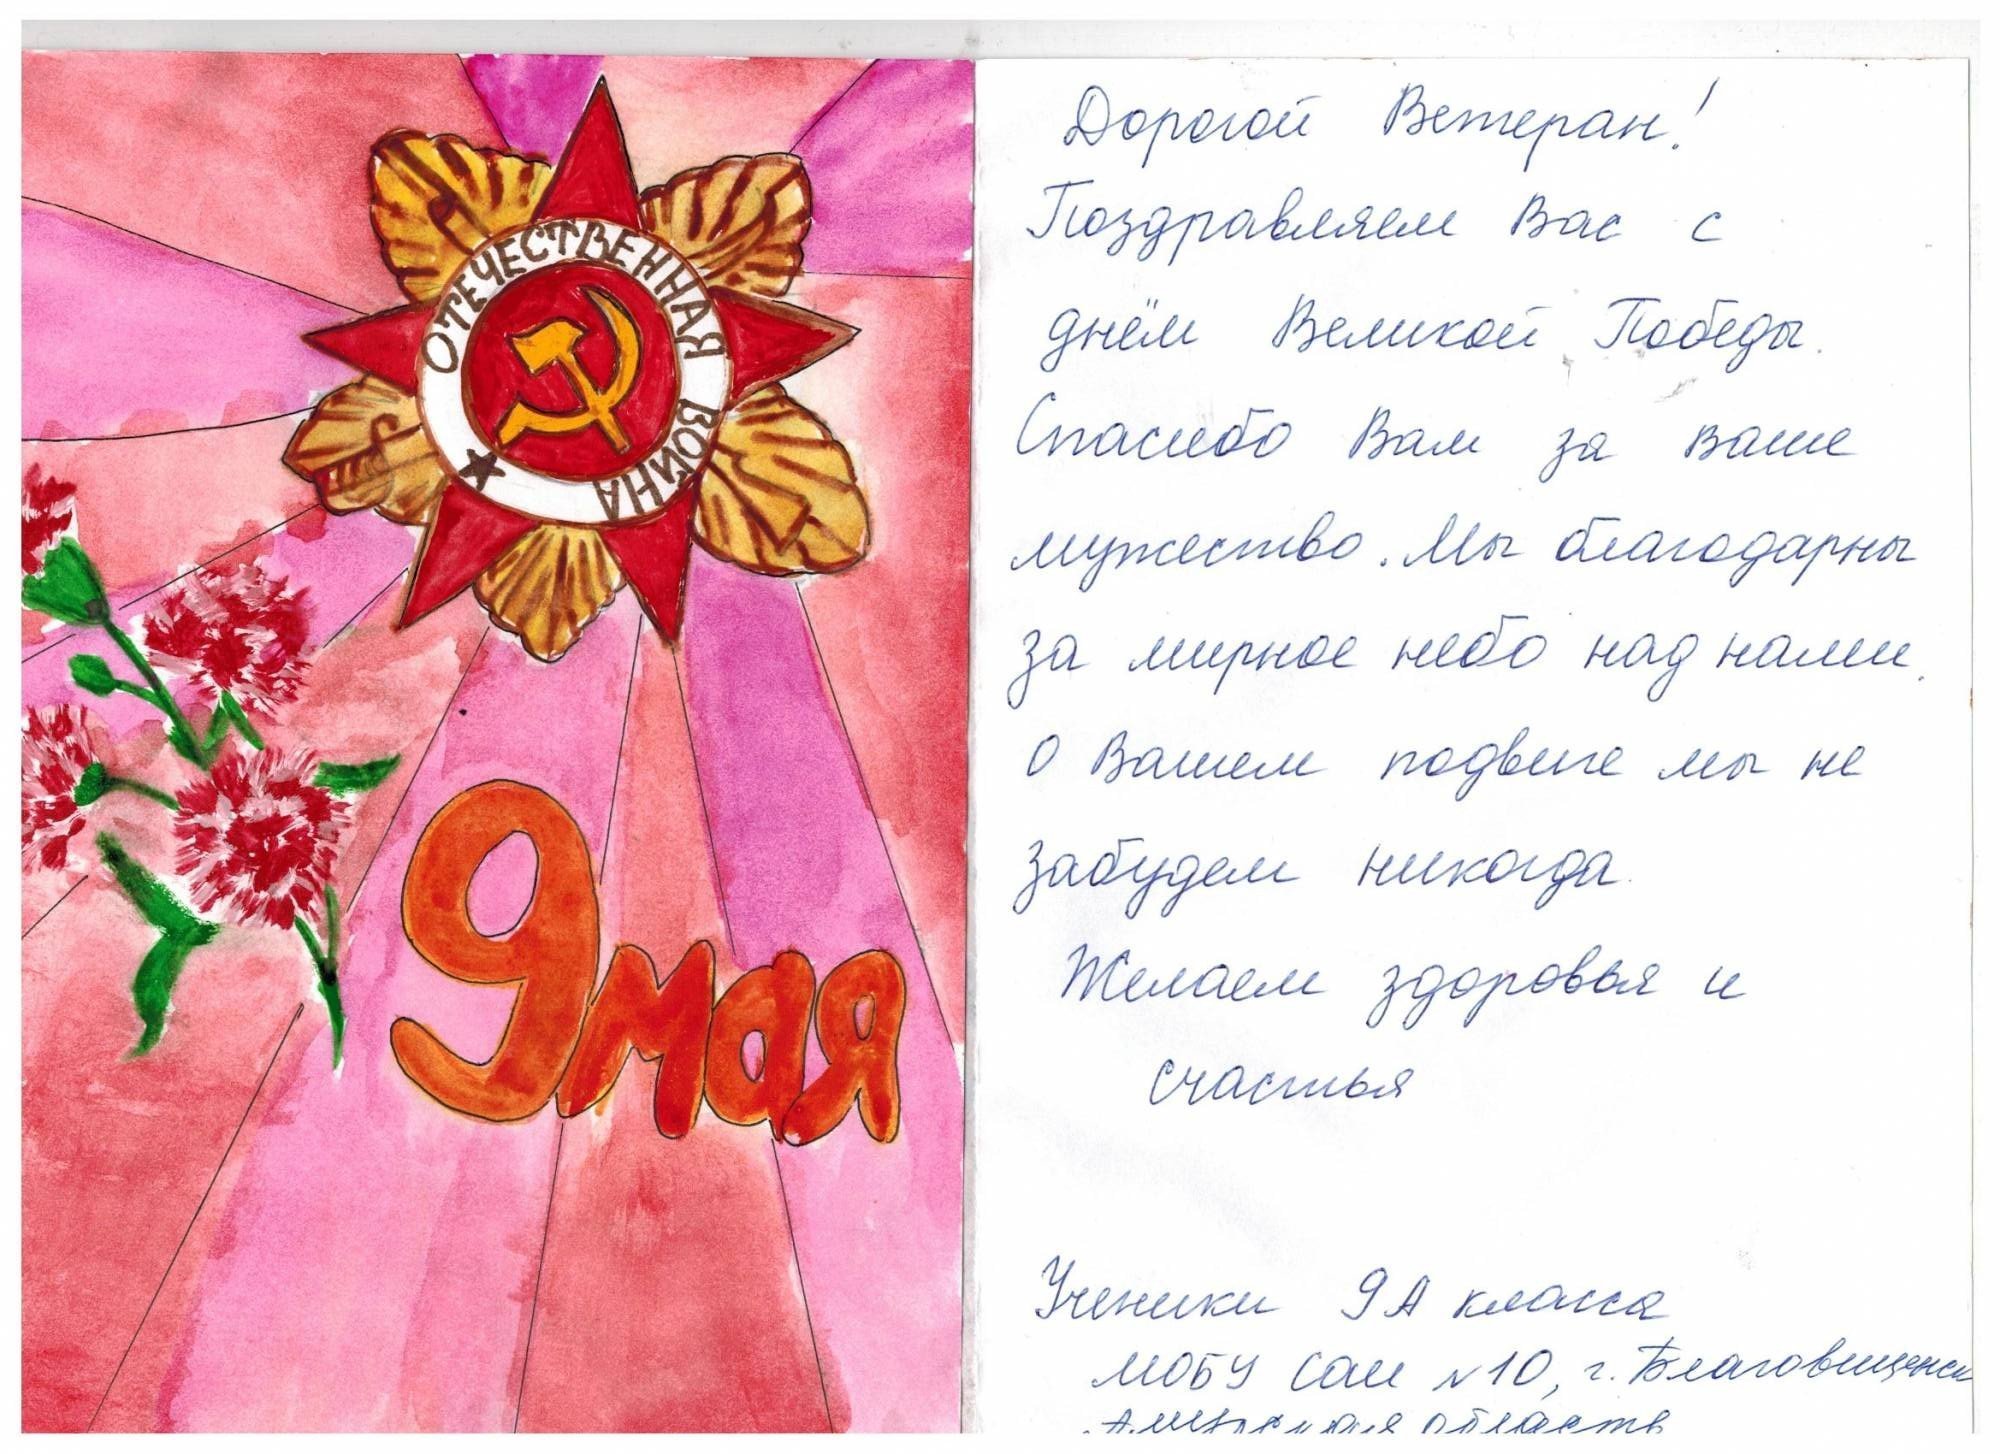 ОТЕЧЕСТВЕННАЯ ВОЙНА
9 мая
Дорогой Ветеран!
Поздравляем Вас с
днём Великой Победы.
Спасибо Вам за ваше
мужество. Мы благодарны
за мирное небо над нами.
О Вашем подвиге мы не
забудем никогда.
Желаем здоровья и
счастья
Ученики 9А класса
МОБУ СОШ №10, г. Благовещенск
Амурская область